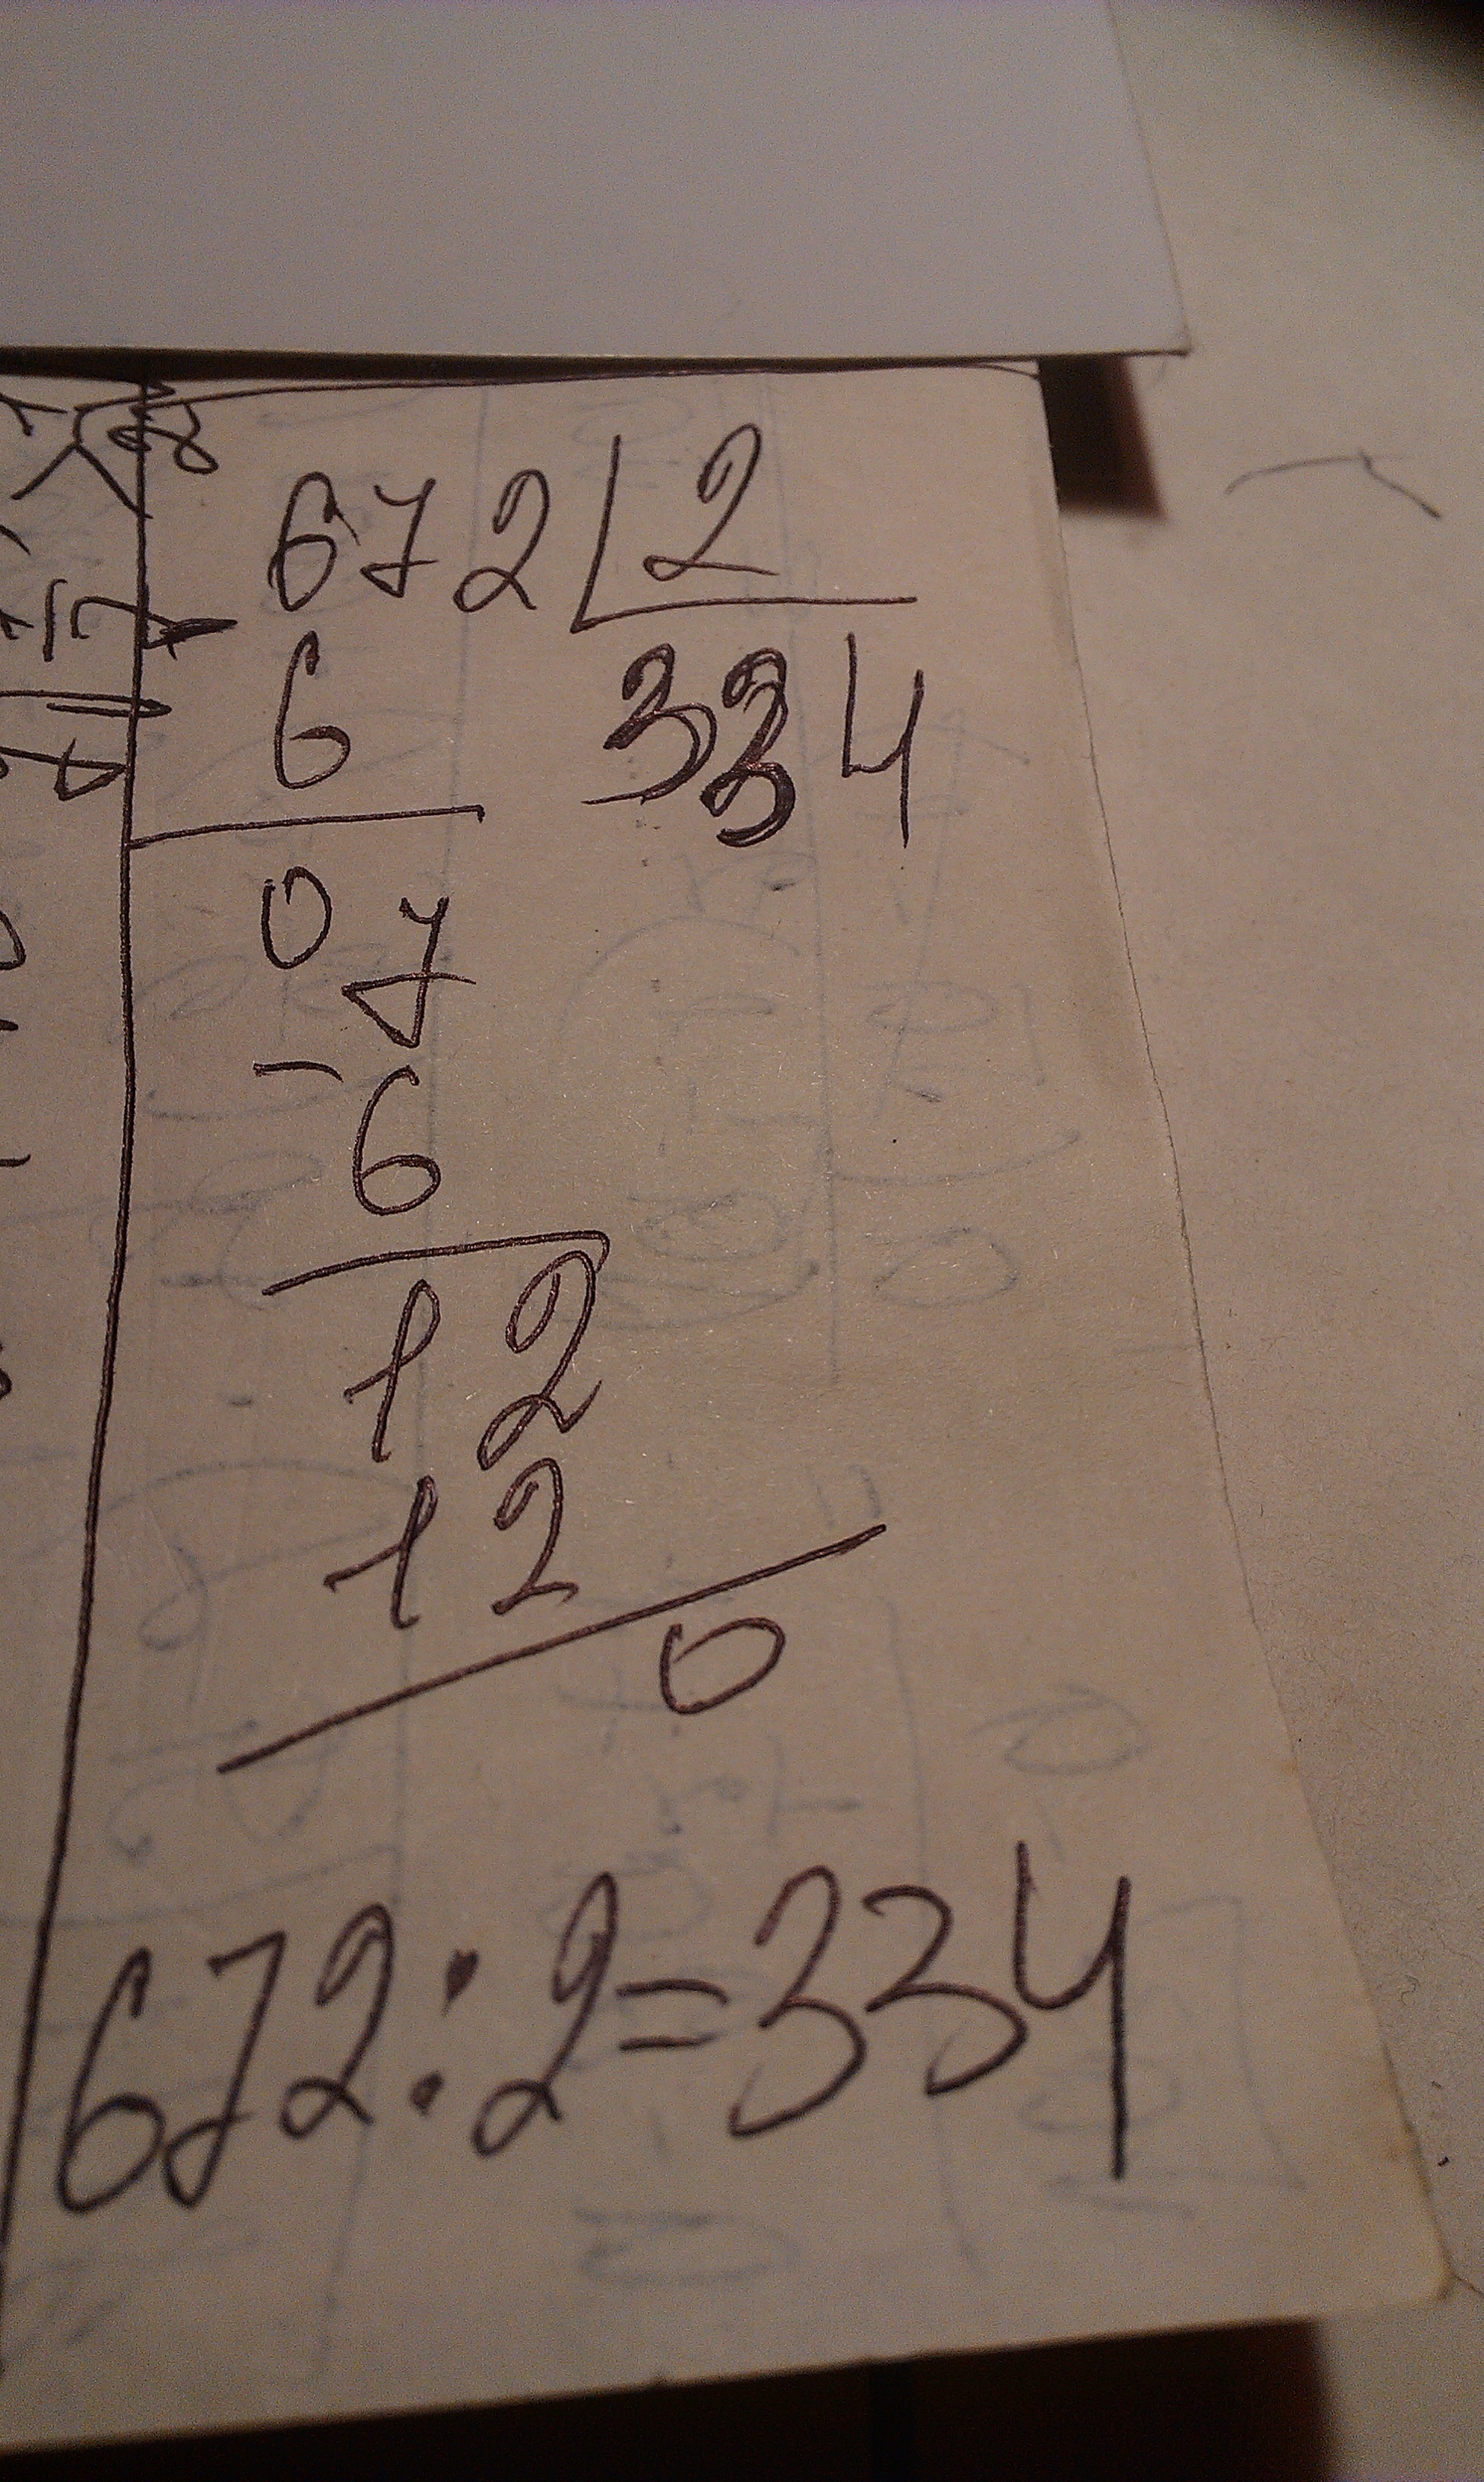 672 2
6 334
07
- 6
12
12
0
672:2=334